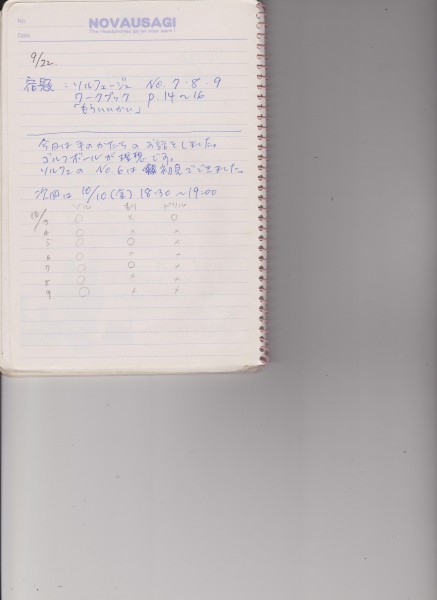 No.
NOVAUSAGI
Date
9/22.
宿題:ソルフェージュ No.7・8・9
ワークブック p.14~16
「もういいかい」
今日は手のかたちのお話をしました。
ゴルフボールが理想です。
ソルフェの No.6は 初見でできました。
次回は 10/10(金) 18:30~19:00
ソル ドリル
10/3 ○ × ○
4 ○ × ×
5 ○ ○ ×
6 ○ × ×
7 ○ ○ ×
8 ○ × ×
9 ○ × ×